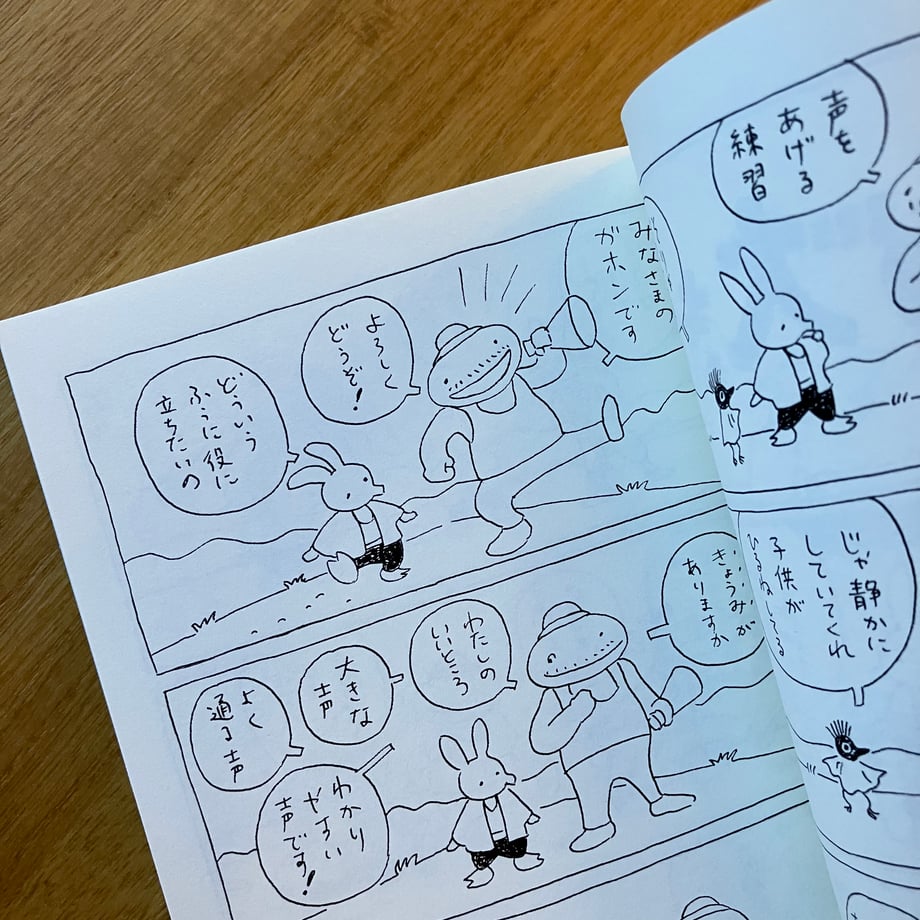 声を
あげる
練習
じゃ静かに
していてくれ
子供が
ひるねしてる
みなさまの
ガホンです
よろしく
どうぞ!
どういう
ふうに役に
立ちたいの
きょうみが
ありますか
わたしの
いいところ
大きな
声
よく
通る声
わかり
やすい
声です!